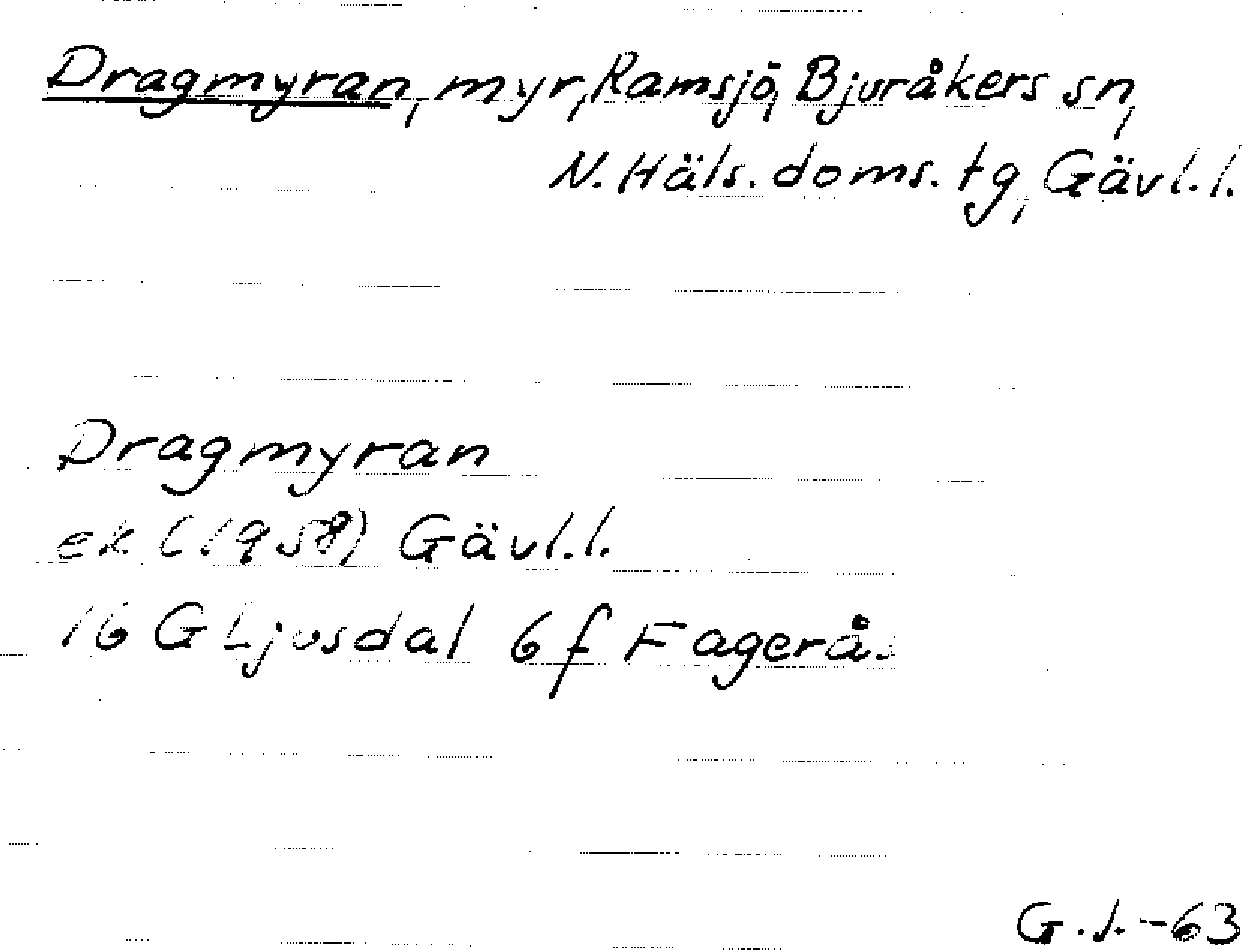 Dragmyran, myr, Ramsjö, Bjuråkers sn,
N. Häls. doms. tg, Gävl. l.
Dragmyran
ek (1958) Gävl. l.
16 G Ljusdal 6 f Fagerås
G. J. -63